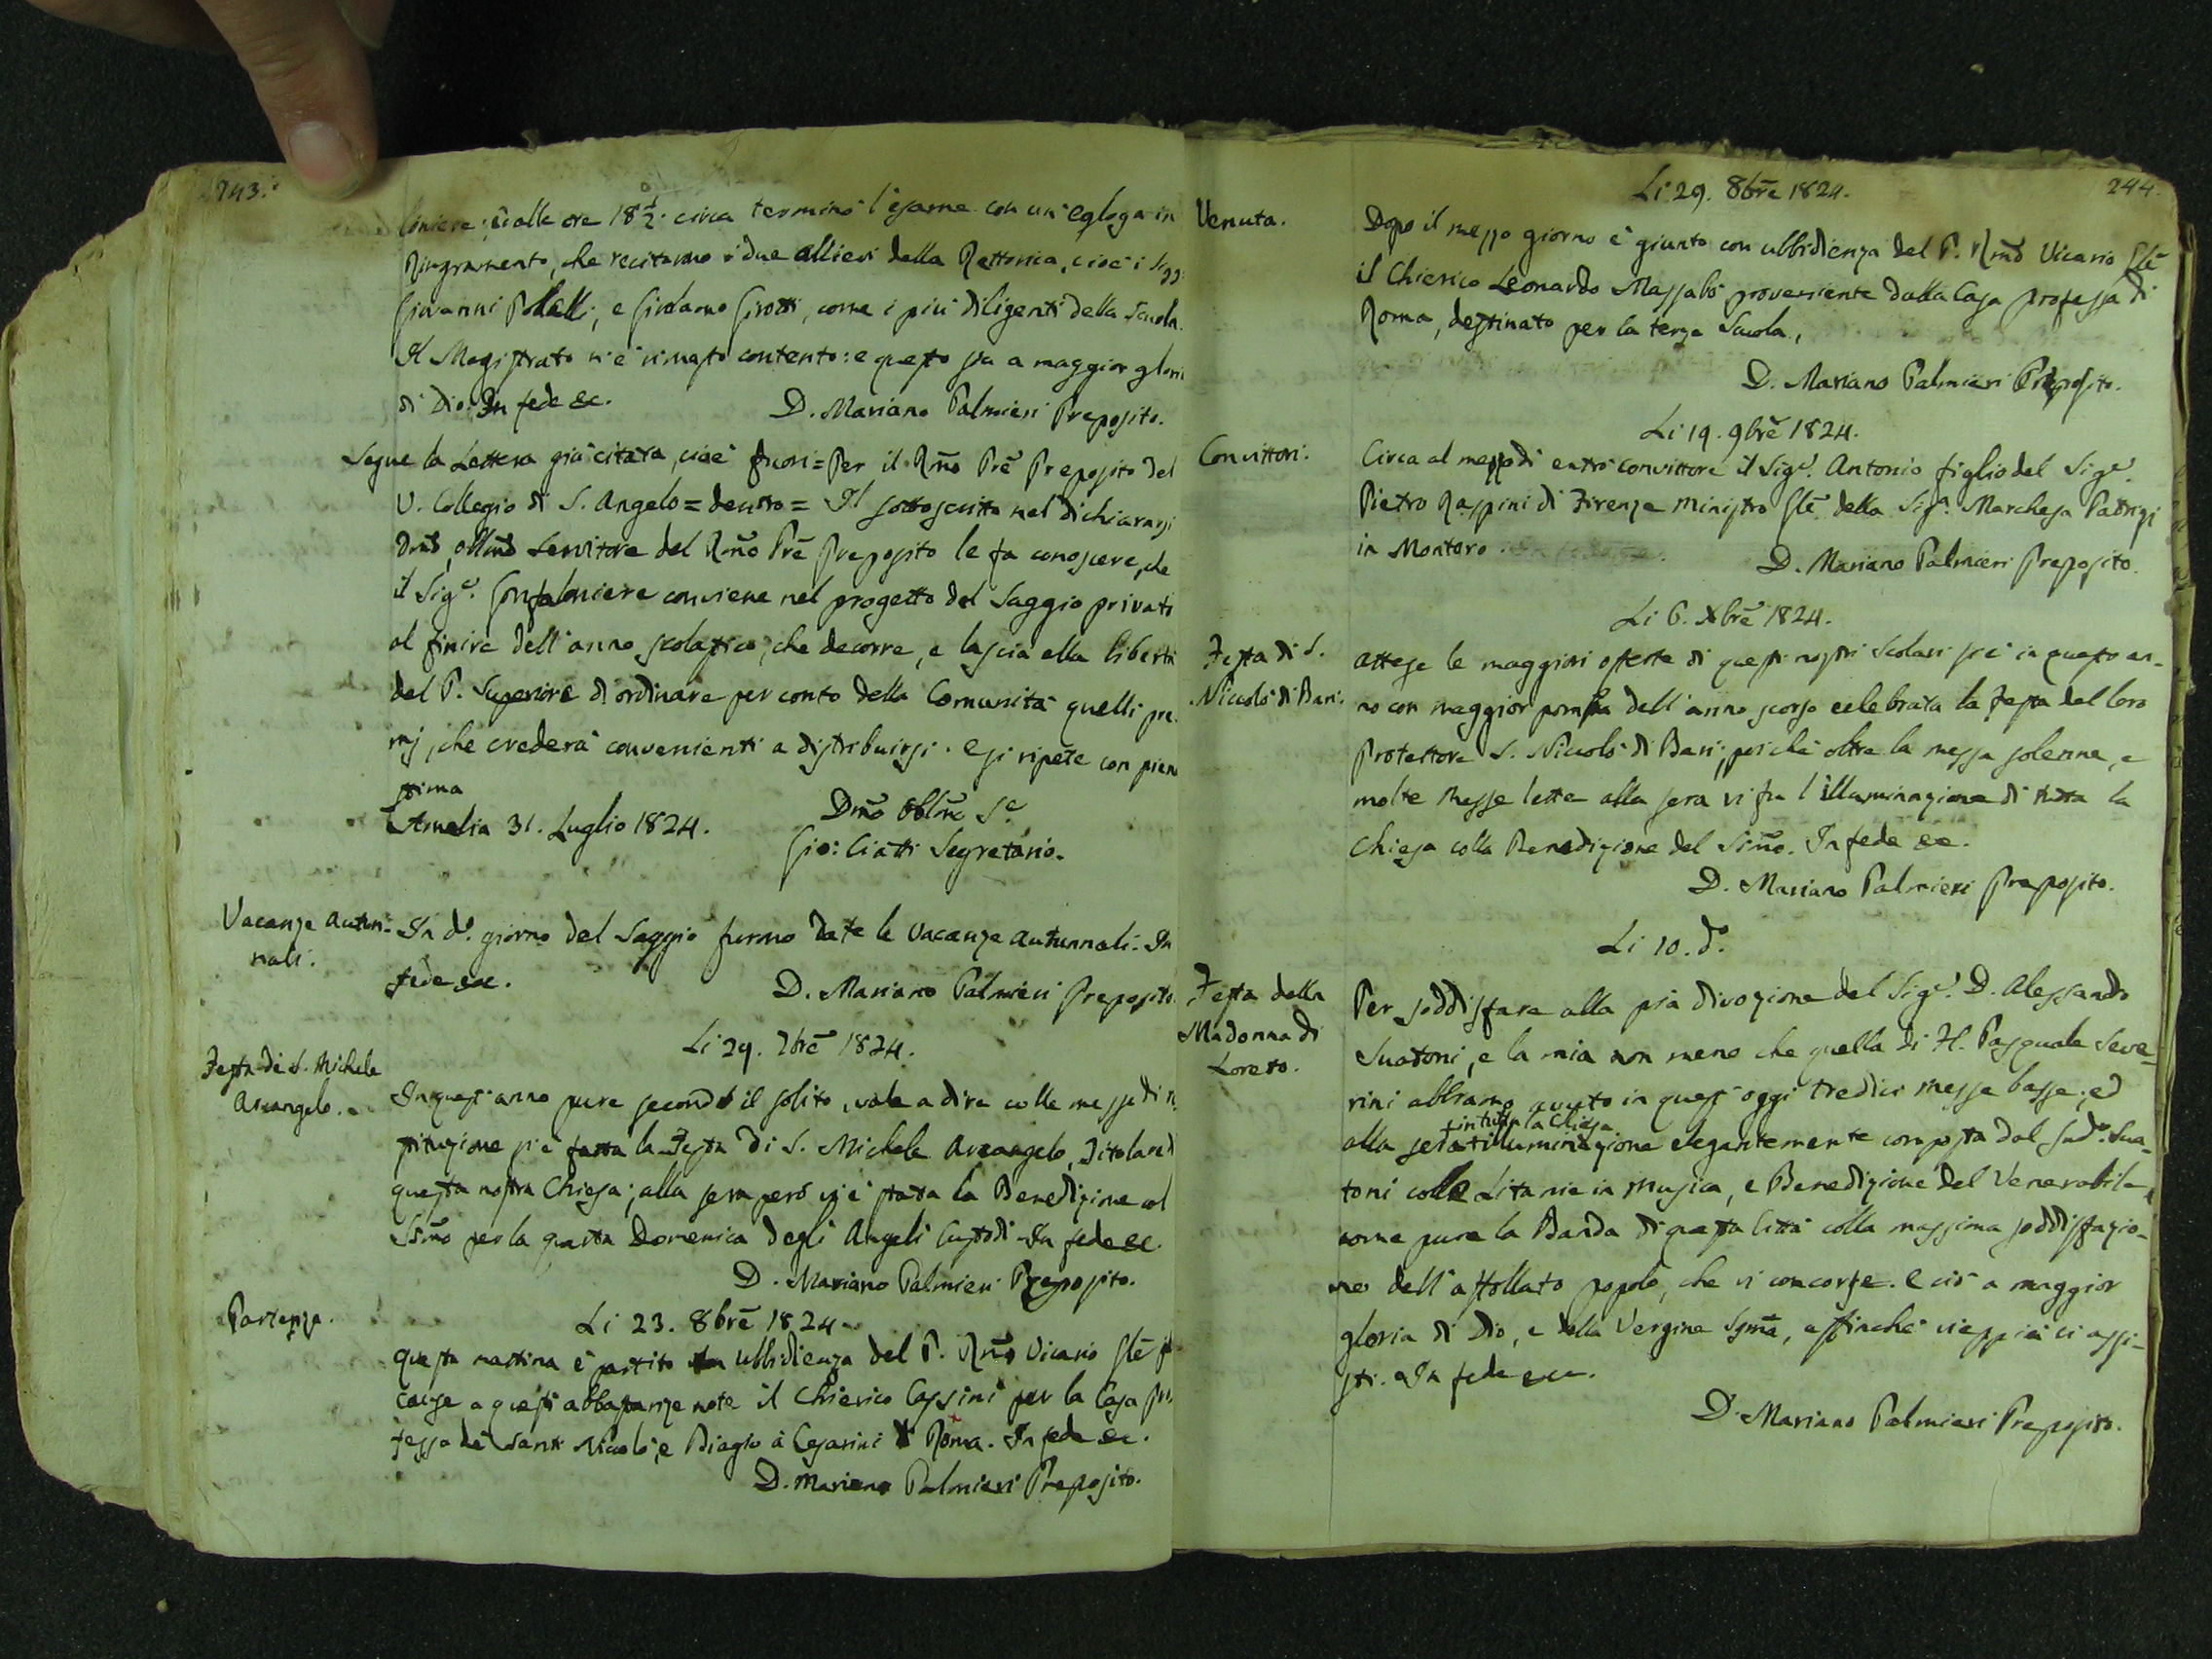 243.
loniere; e alle ore 18 1/2 circa terminò l'esame con un'egloga in
Ringramento, che recitarono i due allievi della Rettorica, cioè i Sigg.
Giovanni Polelli, e Girolamo Girotti, come i più diligenti della Scuola.
Il Magistrato n'è rimasto contento: e questo sia a maggior glori
di Dio. In fede &c.
D. Mariano Palmieri Preposito.
Segue la Lettera già citata, cioè fuori = Per il Rmo Pre Preposito del
V. Collegio di S. Angelo = dentro = Il sottoscritto nel dichiararsi
Dmo, obblmo Servitore del Rmo Pre Preposito le fa conoscere, che
il Sigr. Gonfaloniere conviene nel progetto del Saggio privato
al finire dell'anno scolastico, che decorre, e lascia alla libertà
del P. Superiore di ordinare per conto della Comunità quelli pre
mj, che crederà convenienti a distribuirsi. E si ripete con piena
stima
Amelia 31. Luglio 1824.
Dmo Obblmo Se.
Gio: Ciatti Segretario.
Vacanze Autun-
nali.
In do. giorno del Saggio furono date le vacanze autunnali. In
fede &c.
D. Mariano Palmieri Preposito.
Li 29. 7bre 1824.
Festa di S. Michele
Arcangelo.
In quest'anno pure secondo il solito, vale a dire colle messe di
stituzione si è fatta la Festa di S. Michele Arcangelo, Titolare di
questa nostra Chiesa; alla sera però vi è stata la Benedizione col
Ssmo per la quarta Domenica degli Angeli Custodi. In fede &c.
D. Mariano Palmieri Preposito.
Partenza.
Li 23. 8bre 1824.
Questa mattina è partito ubbidienza del P. Rmo Vicario Gle
cause a questi abbastanza note il Chierico Cassini per la Casa pro
fessa de' Santi Nicolò, e Biagio a' Cesarini Roma. In fede &c.
D. Mariano Palmieri Preposito.
244.
Li 29. 8bre 1824.
Venuta.
Dopo il mezzo giorno è giunto con ubbidienza del P. Rmo Vicario Gle
il Chierico Leonardo Massabò proveniente dalla Casa professa di
Roma, destinato per la terza Scuola.
D. Mariano Palmieri Preposito.
Li 19. 9bre 1824.
Convittori.
Circa al mezzodì entrò convittore il Sigr. Antonio figlio del Sigr.
Pietro Raspini di Firenze Ministro Gle della Siga. Marchesa Patrizi
in Montoro.
D. Mariano Palmieri Preposito.
Li 6. Xbre 1824.
Festa di S.
Niccolò di Bari.
Attese le maggiori offerte di questi nostri Scolari si è in questo an-
no con maggior pompa dell'anno scorso celebrata la Festa del loro
Protettore S. Niccolò di Bari; poichè oltre la messa solenne, e
molte Messe lette alla sera vi fu l'illuminazione di tutta la
Chiesa colla Benedizione del Ssmo. In fede &c.
D. Mariano Palmieri Preposito.
Li 10. do.
Festa della
Madonna di
Loreto.
Per soddisfare alla pia divozione del Sigr. D. Alessandro
Suatoni, e la mia non meno che quella di H. Pasquale Seve-
rini abbiamo avuto in quest'oggi tredici messe basse; ed
in tutta la Chiesa
alla sera illuminazione elegantemente composta dal sudo. Sua-
toni colle Litanie in Musica, e Benedizione del Venerabile,
come pure la Banda di questa Città colla massima soddisfazio-
ne dell'affollato popolo, che vi concorse. E ciò a maggior
gloria di Dio, e della Vergine Ssma, affinchè vieppiù ci assi-
sti. In fede &c.
D. Mariano Palmieri Preposito.